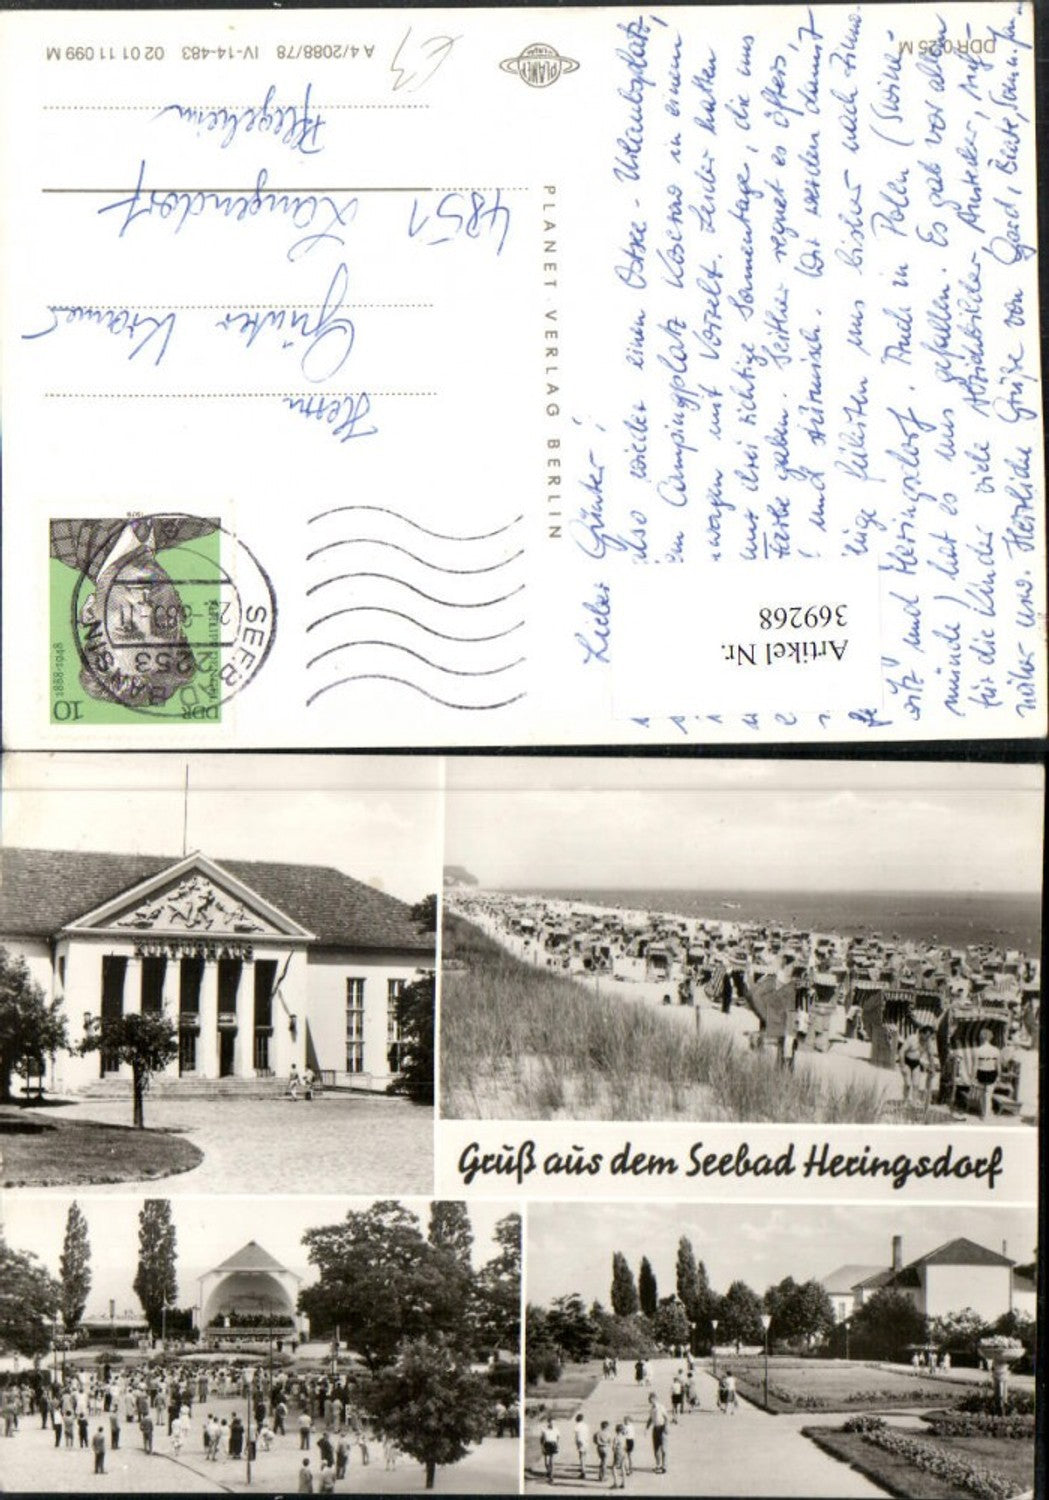 Lieber Günter!
also wieder einen Ostsee-Urlaubsplatz,
Campingplatz Koserow in einem
wagen mit Vorzelt. Leider hatten
erst drei richtige Sonnentage, die uns
Farbe gaben. Seither regnet es öfters,
und stürmisch. Wir werden damit
fertig. führten uns bisher nach Zinno-
witz und Heringsdorf. Auch in Polen (Swine-
münde) hat es uns gefallen. Es gab vor allem
für die Kinder viele Abziehbilder, Anstecker,
Herzliche Grüße von Gerd, Beate,
Artikel Nr.
369268
DDR 0,25 M
PLANET-VERLAG BERLIN
PLANET
A 4/2088/78 IV-14-483 02 01 11 099 M
Herrn
Günter Kramer
4851 Langendorf
Pflegeheim
DDR
10
1888-1948
1978
SEEBAD BANSIN
2253
KULTURHAUS
Gruß aus dem Seebad Heringsdorf